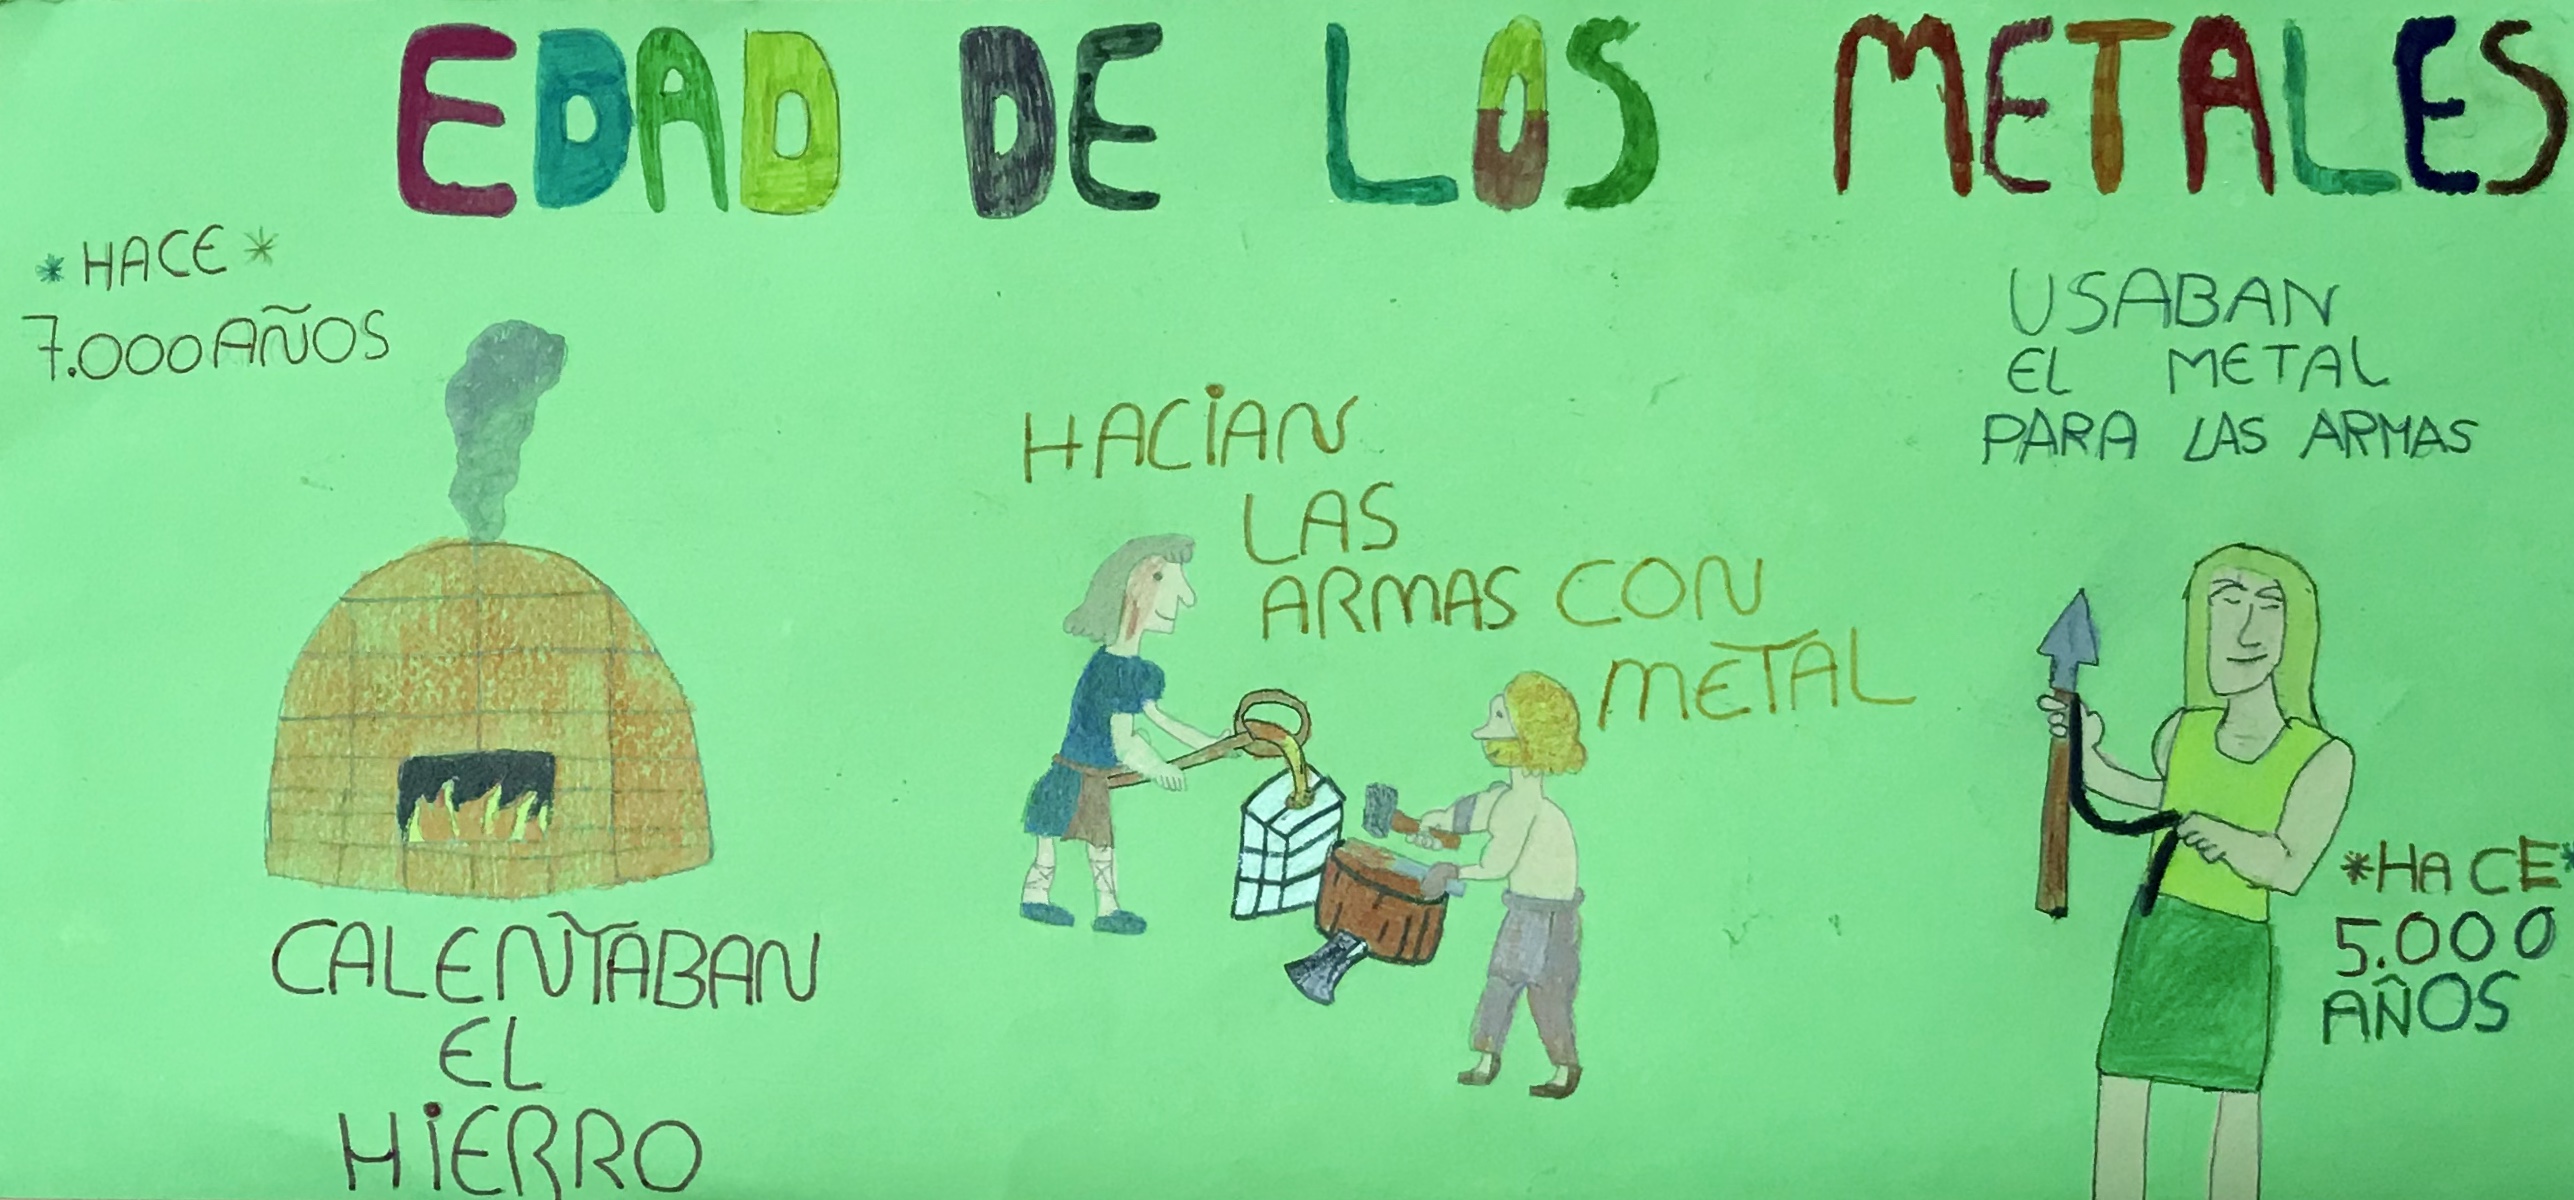 EDAD DE LOS METALES
*HACE*
7.000 AÑOS
CALENTABAN
EL
HiERRO
HACiAN
LAS
ARMAS CON
METAL
USABAN
EL METAL
PARA LAS ARMAS
*HACE*
5.000
AÑOS